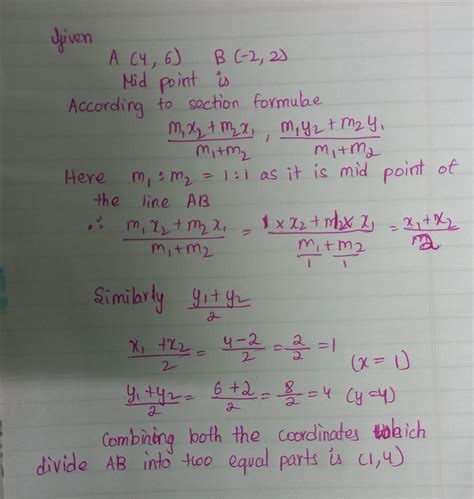 Given
A (4, 6) B (-2, 2)
Mid point is
According to section formulae
(m₁x₂ + m₂x₁)/(m₁+m₂) , (m₁y₂ + m₂y₁)/(m₁+m₂)
Here m₁ : m₂ = 1:1 as it is mid point of
the line AB
∴ (m₁x₂ + m₂x₁)/(m₁+m₂) = (1 × x₂ + x₁)/(m₁/1 + m₂/1) = (x₁+x₂)/2
Similarly (y₁+y₂)/2
(x₁ + x₂)/2 = (4-2)/2 = 2/2 = 1 (x = 1)
(y₁+y₂)/2 = (6+2)/2 = 8/2 = 4 (y=4)
Combining both the coordinates which
divide AB into two equal parts is (1,4)